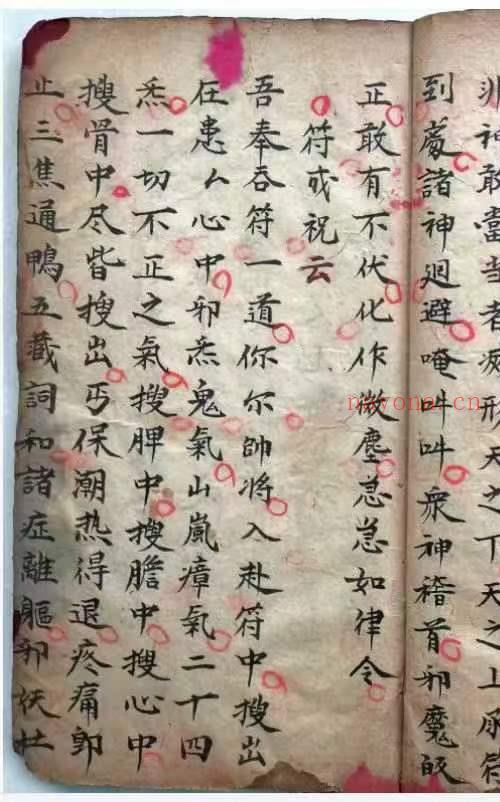 神敢當者形天之下天之上符
到處諸神廻避唵吽吽衆神稽首邪魔皈
正敢有不伏化作微塵急急如律令
符或祝云
吾奉吞符一道你尔帥將入赴符中搜出
在患厶心中邪炁鬼氣山嵐瘴氣二十四
炁一切不正之氣搜脾中搜膽中搜心中
搜骨中尽皆搜出丐保潮热得退疼痛即
止三焦通鴨五藏詞和諸症離軀邪妖杜
nayona.cn